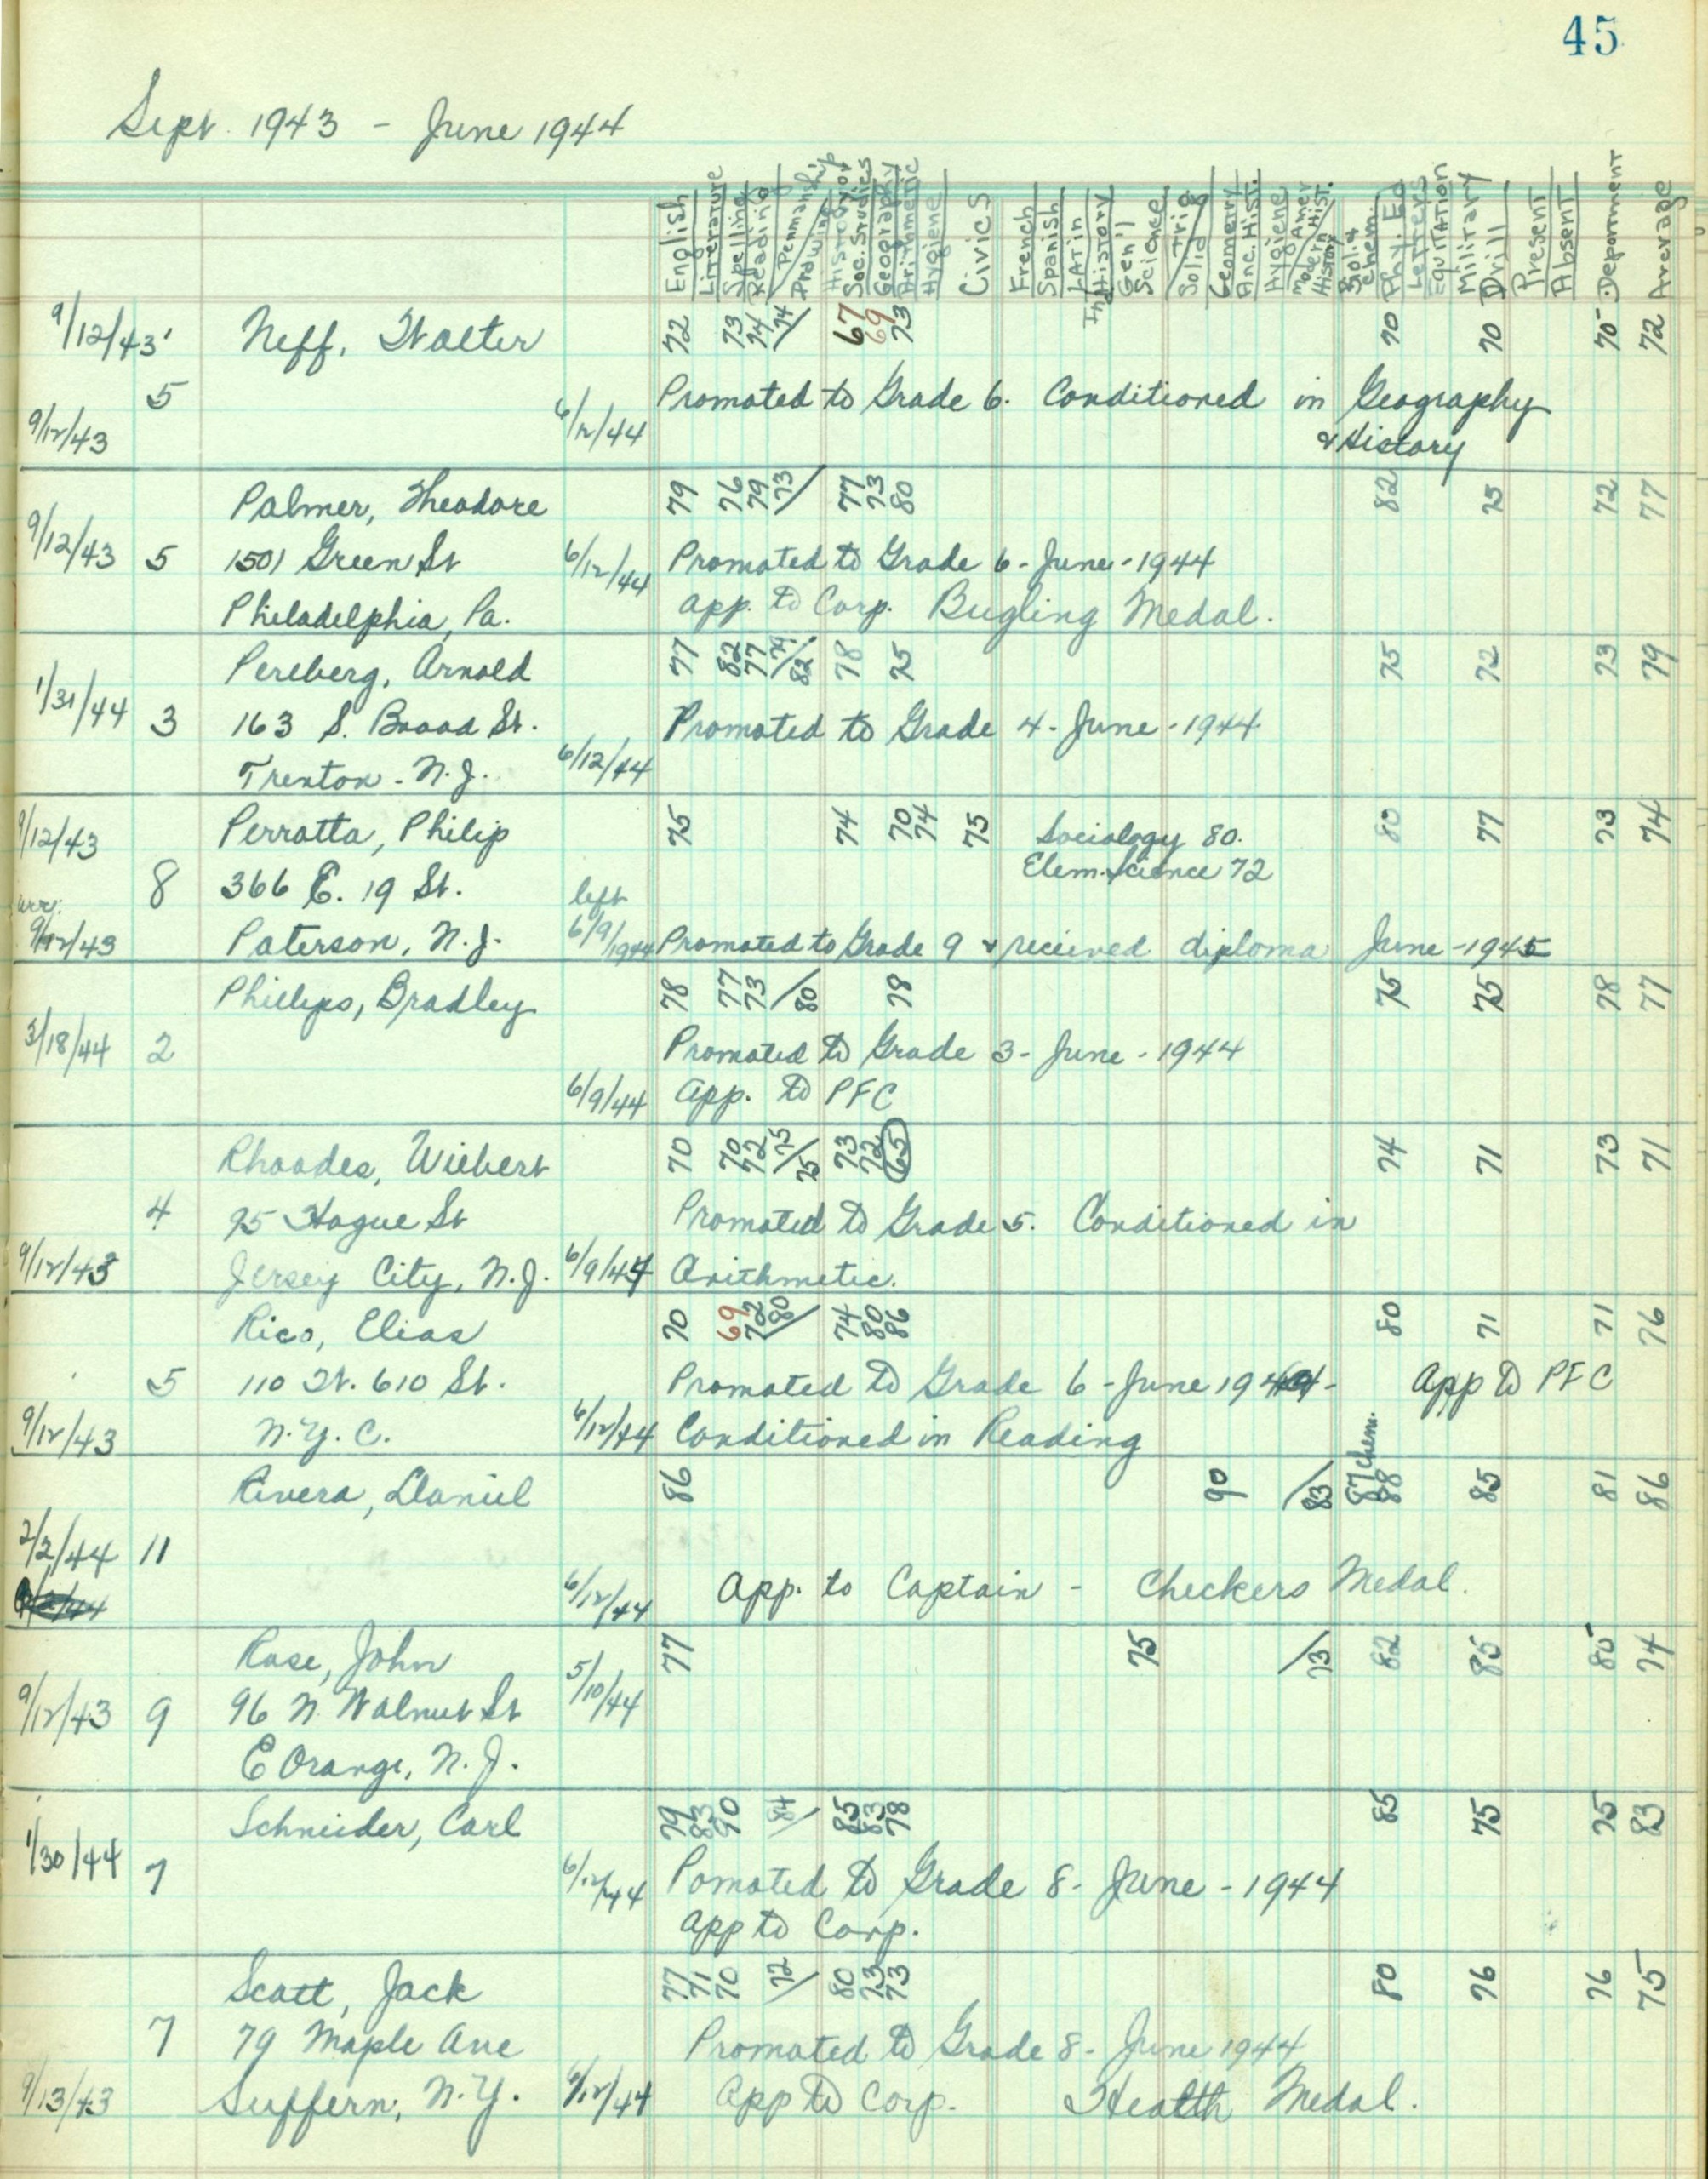 45
Sept. 1943 - June 1944
English
Literature
Spelling
Reading
Penmanship
Drawing
History or
Soc. Studies
Geography
Arithmetic
Hygiene
Civics
French
Spanish
Latin
History
Gen'l
Science
Solid Trig
Geometry
Anc. Hist.
Hygiene
Modern History
Amer Hist.
Chem.
Phy. Ed
Letters
Equitation
Military
Drill
Present
Absent
Deportment
Average
9/12/43 Neff, Walter 72 73 74 74/ 67 69 73 70 70 70 72
5 6/12/44 Promoted to Grade 6. Conditioned in Geography
9/12/43 & History
Palmer, Theodore 79 76 79 73/ 77 73 80 82 75 72 77
9/12/43 5 1501 Green St 6/12/44 Promoted to Grade 6 - June - 1944
Philadelphia, Pa. App. to Corp. Bugling Medal.
Perlberg, Arnold 77 82 77 79/82 78 75 75 72 73 79
1/31/44 3 163 S. Broad St. Promoted to Grade 4 - June - 1944
Trenton - N.J. 6/12/44
9/12/43 Perratta, Philip 75 74 70 74 75 Sociology 80. 80 77 73 74
Elem. Science 72
8 366 E. 19 St. left
arr. 9/12/43 Paterson, N.J. 6/9/1944 Promoted to Grade 9 & recieved diploma June - 1945
Phillips, Bradley 78 77 73 /80 78 75 75 78 77
3/18/44 2 Promoted to Grade 3 - June - 1944
6/9/44 App. to PFC
Rhoades, Wilbert 70 70 72 75/75 73 72 65 74 71 73 71
4 95 Hague St Promoted to Grade 5. Conditioned in
9/12/43 Jersey City, N.J. 6/9/44 Arithmetic.
Rico, Elias 70 69 78 80/ 74 80 86 80 71 71 76
5 110 W. 610 St. Promoted to Grade 6 - June 1944 - App to PFC
9/12/43 N.Y.C. 6/12/44 Conditioned in Reading
Rivera, Daniel 86 90 /83 87 Chem. 88 85 81 86
2/2/44 11
6/12/44 App. to Captain - Checkers Medal.
Rose, John 77 75 /73 82 85 80 74
9/12/43 9 96 N Walnut St 5/10/44
E Orange, N.J.
Schneider, Carl 79 83 90 84/ 85 83 78 85 75 75 83
1/30/44 7 6/12/44 Pomoted to Grade 8 - June - 1944
App to Corp.
Scott, Jack 77 71 70 72/ 80 73 73 80 76 76 75
7 79 Maple Ave Promoted to Grade 8 - June 1944
9/13/43 Suffern, N.Y. 6/12/44 App to Corp. Health Medal.